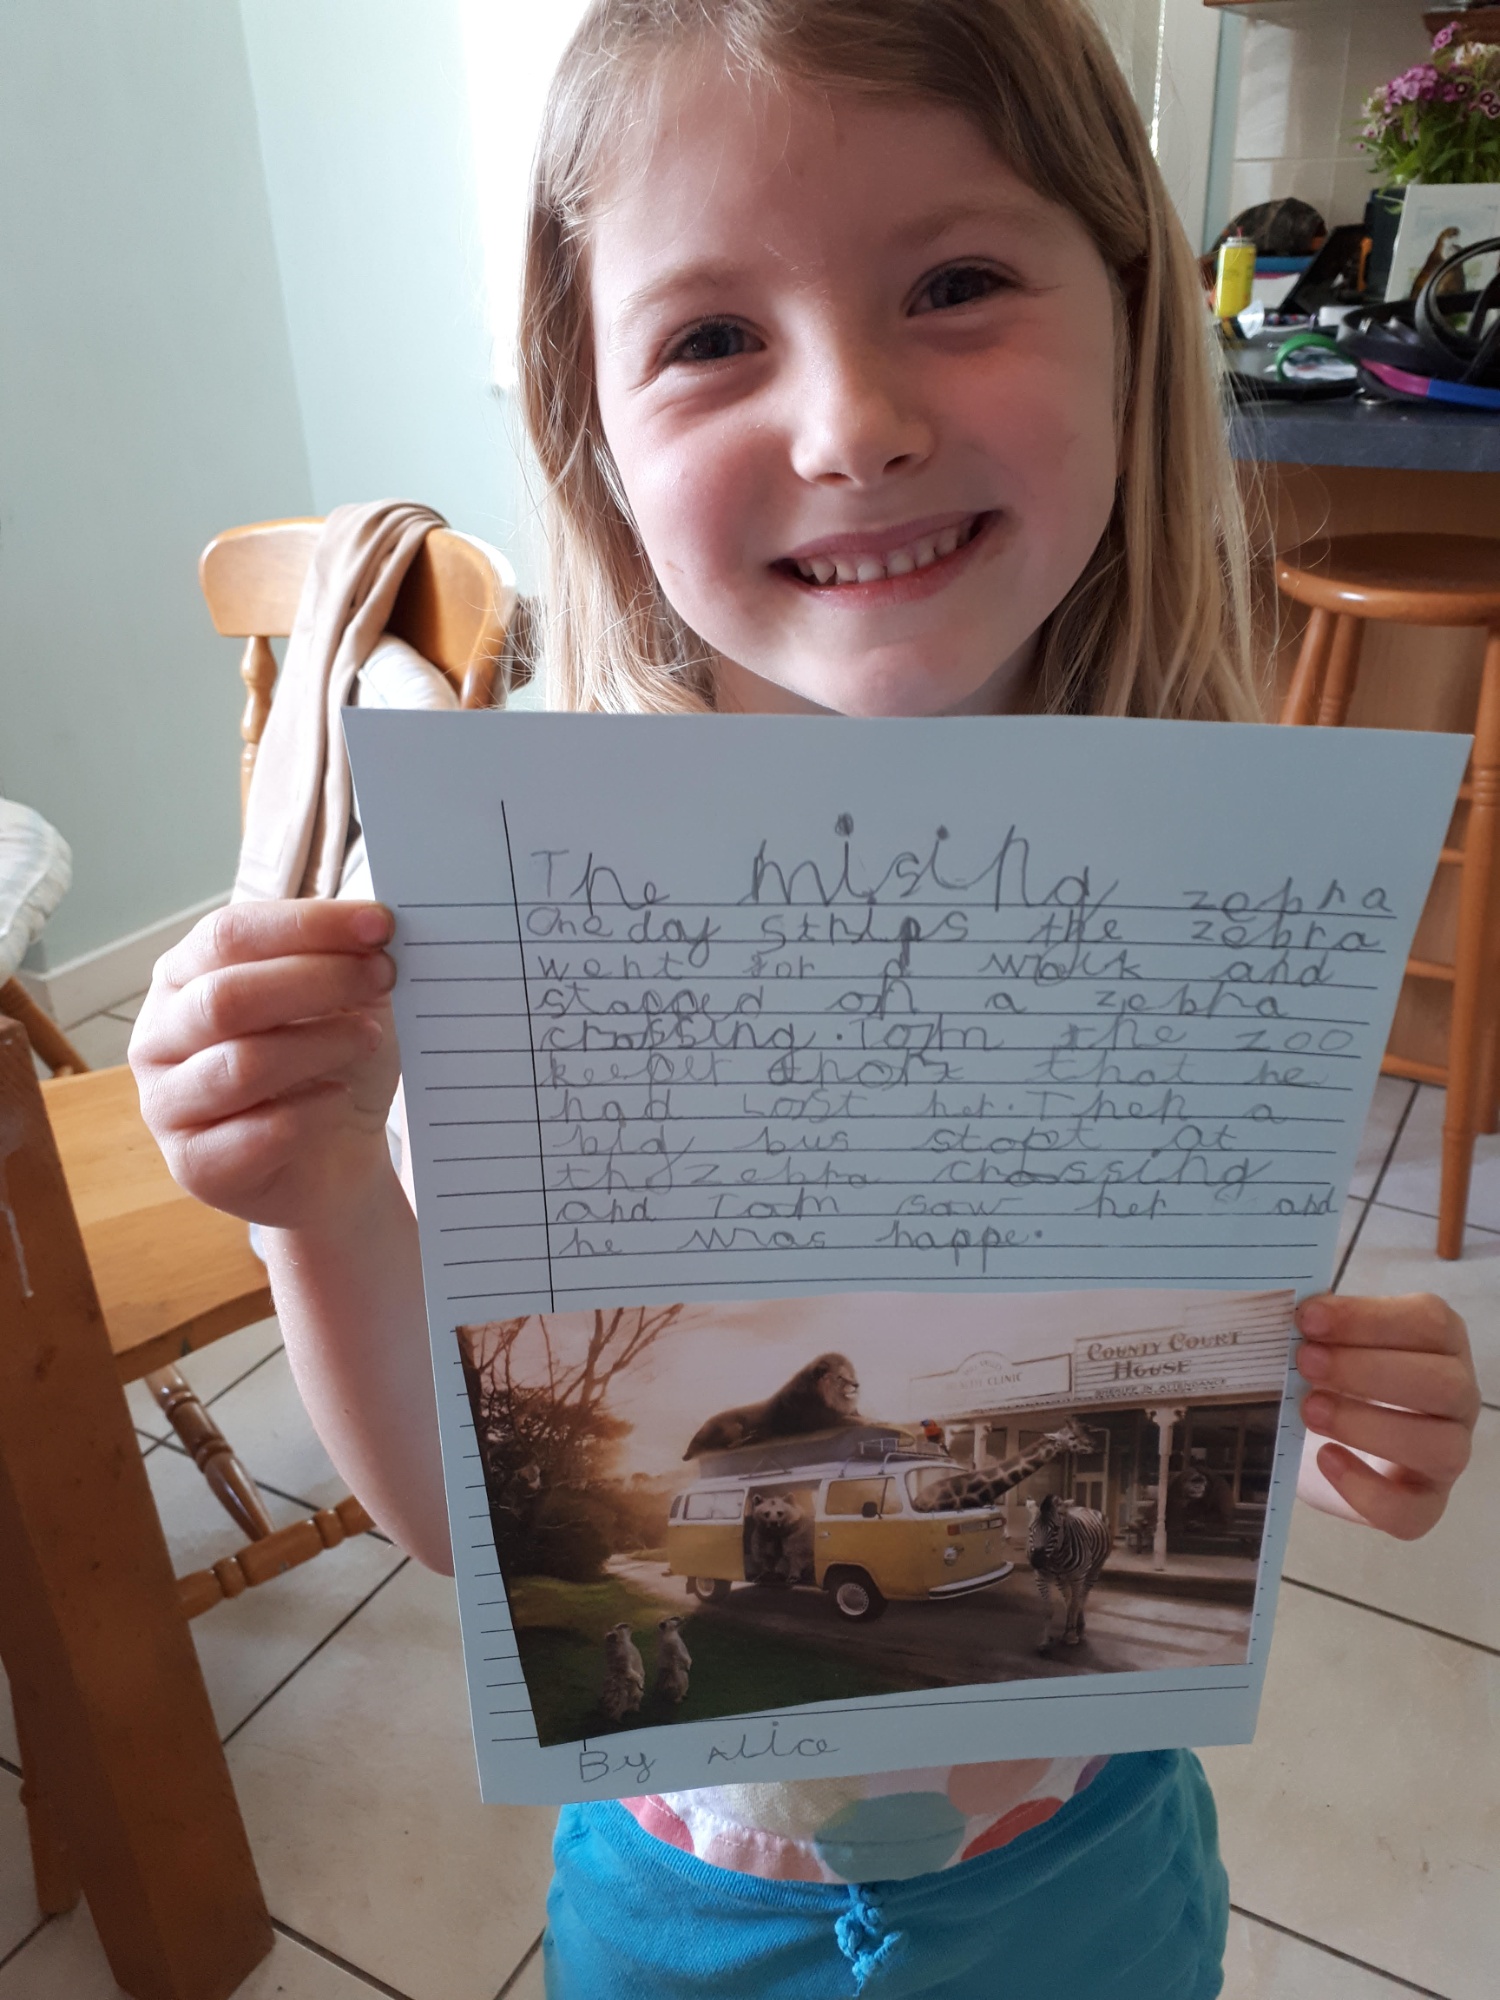 The mising zebra
One day strips the zebra
went for a walk and
stopped on a zebra
crossing. Tom the zoo
keeper that he
had Lost her. Then a
big bus stopt at
the zebra crossing
and Tom saw her and
he was happe.
COUNTY COURT
HOUSE
CLINIC
By Alice